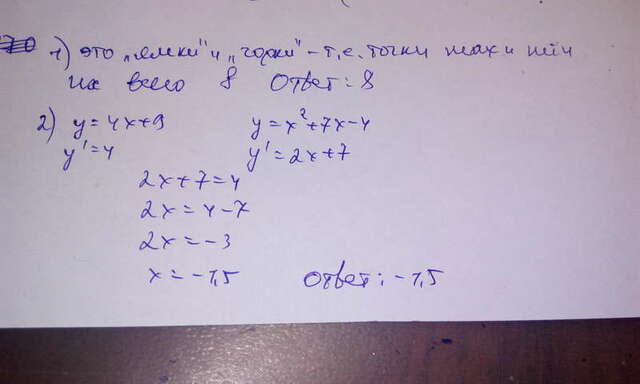 1) это „ямки" и „горки" – т.е. точки max и min
их всего 8 Ответ: 8
2) y = 4x+9 y = x²+7x-4
y' = 4 y' = 2x+7
2x+7 = 4
2x = 4-7
2x = -3
x = -1,5 Ответ: -1,5